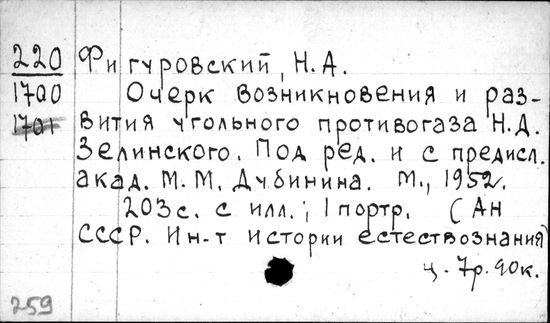 220 Фигуровский, Н.А.
1700 Очерк возникновения и раз-
1701 вития угольного противогаза Н.Д.
Зелинского. Под ред. и с предисл.
акад. М.М. Дубинина. М., 1952.
203с. с илл.; 1 портр. (АН
СССР. Ин-т истории естествознания)
ц. 7р. 90к.
259